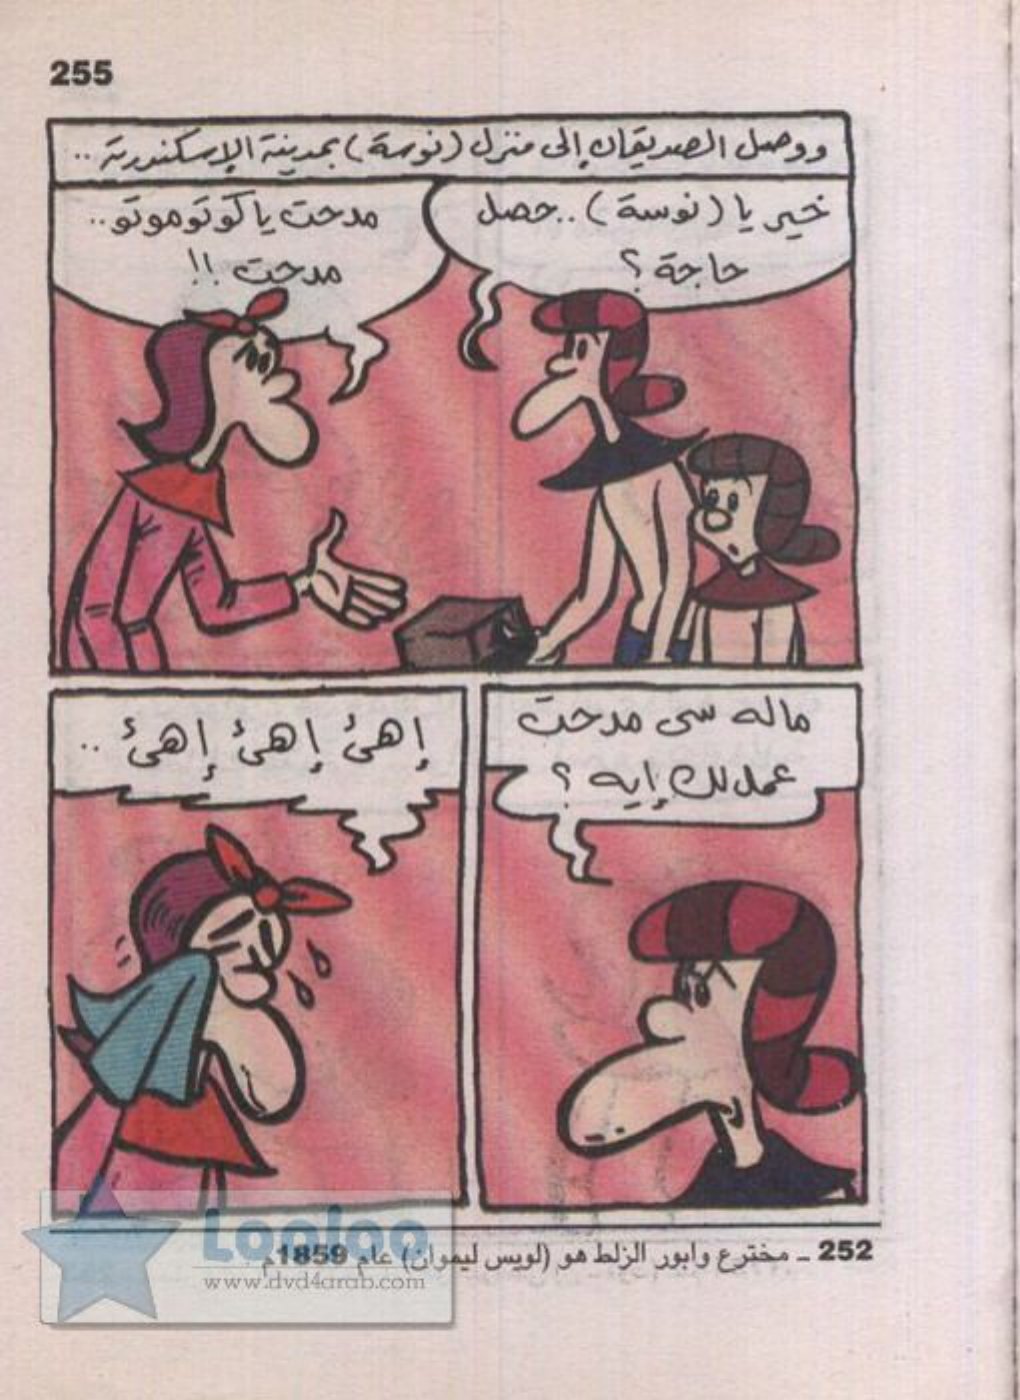 255
ووصل الصديقان إلى منزل (نوسة) بمدينة الإسكندرية ..
خير يا (نوسة) .. حصل
حاجة ؟
مدحت يا كوتوموتو ..
مدحت !!
ماله سى مدحت
عمللك إيه ؟
إهئ إهئ إهئ ..
252 ــ مخترع وابور الزلط هو (لويس ليموان) عام 1859م .
Looloo
www.dvd4arab.com